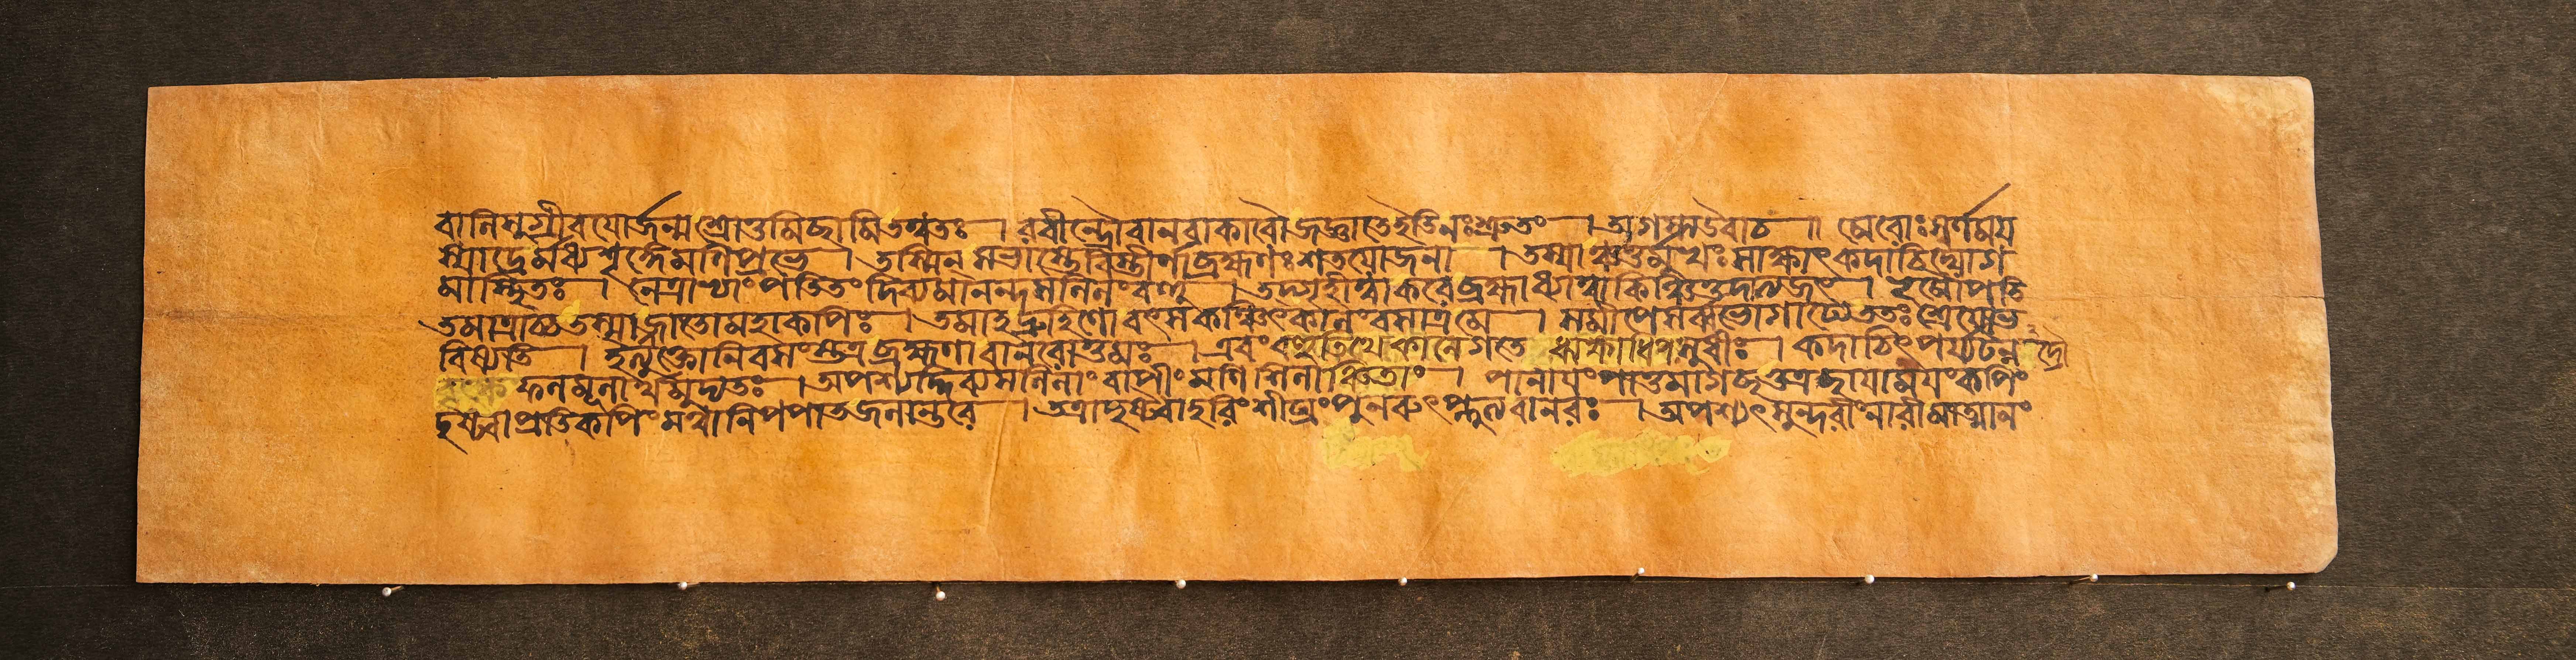 বালিসুগ্রীবযোর্জন্ম শ্রোতুমিচ্ছামি তত্ত্বতঃ । রবীন্দ্রৌ বানরাকারৌ জজ্ঞাতে ইতি নঃ শ্রুতং । অগস্ত্য উবাচ ॥ মেরোঃ স্বর্ণময
স্যাদ্রের্মধ্যশৃঙ্গে মণিপ্রভে । তস্মিন্ সভাস্তে বিস্তীর্ণা ব্রহ্মণঃ শতযোজনা । তস্যাং চতুর্মুখঃ সাক্ষাৎ কদাচিদ্যোগ
মাস্থিতঃ । নেত্রাভ্যাং পতিতং দিব্যমানন্দসলিলং বহু । তদ্গৃহীত্বা করে ব্রহ্মা ধ্যাত্বা কিঞ্চিত্তদত্যজৎ । ভূমৌ পতি
তমাত্রাচ্চ তস্মাজ্জাতো মহাকপিঃ । তমাহ দ্রুহিণো বৎস কঞ্চিৎ কালং বসাত্র মে । সমীপে সর্বভোগাঢ্যে ততঃ শ্রেযো ভ
বিষ্যতি । ইত্যুক্তো নিবসংস্তত্র ব্রহ্মণা বানরোত্তমঃ । এবং বহুতিথে কালে গতে ঋক্ষাধিপ সুধীঃ । কদাচিৎ পর্যটন্নদ্রৌ
ফলমূলার্থমুদ্যতঃ । অপশ্যদ্দিব্যসলিলাং বাপীং মণিশিলাঞ্চিতাং । পানীযং পাতুমাগচ্ছত্তত্র ছাযামযং কপিং
দৃষ্ট্বা প্রতিকপিং মত্বা নিপপাত জলান্তরে । তত্রাদৃষ্ট্বা হরিং শীঘ্রং পুনরুৎপ্লুত্য বানরঃ । অপশ্যৎ সুন্দরীং নারীমাত্মানং